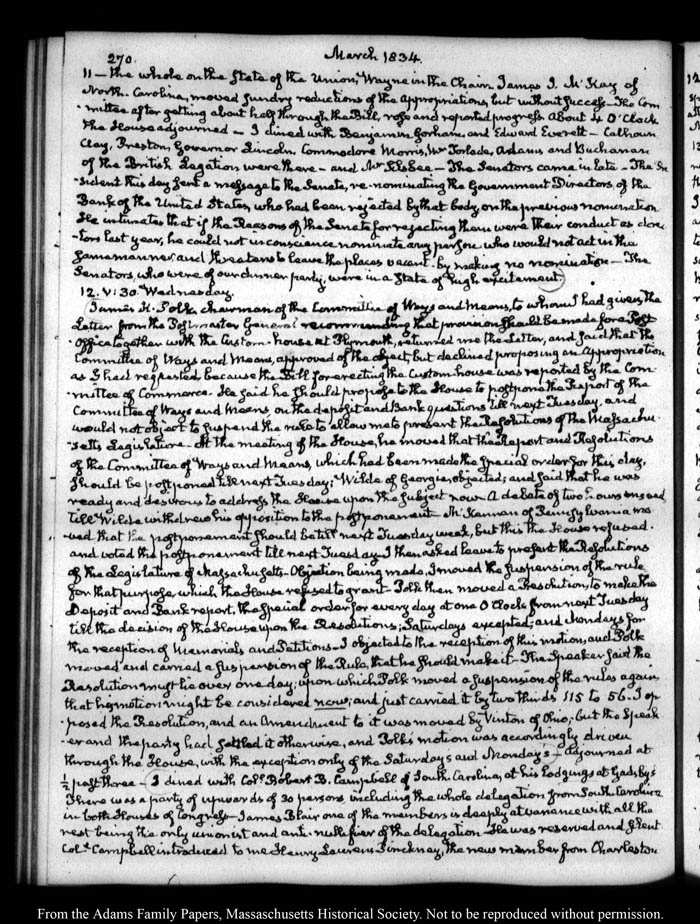 270.
March 1834.
11 — the whole on the State of the Union, Wayne in the Chair. James I. McKay of
North-Carolina, moved sundry reductions of the Appropriations, but without success — The Com
-mittee after getting about half through the Bill, rose and reported progress. About 4 O'Clock
the House adjourned — I dined with Benjamin Gorham, and Edward Everett — Calhoun
Clay, Preston, Governor Lincoln Commodore Morris, Mr Forlade, Adams and Buchanan
of the British Legation were there — and Mr Silsbee — The Senators came in late — The Pre
-sident this day sent a message to the Senate, re-nominating the Government Directors, of the
Bank of the United States, who had been rejected by that body, on the previous nomination
He intimates that if the Reasons of the Senate for rejecting them were their conduct as direc
-tors last year, he could not in conscience nominate any person who would not act in the
same manner, and threatens to leave the places vacant by making no nomination — The
Senators, who were of our dinner party, were in a State of high excitement.
12. V:30. Wednesday.
James K. Polk, chairman of the Committee of Ways and Means, to whom I had given the
Letter from the Postmaster General recommending that provision should be made for a Post
-Office together with the Custom-house at Plymouth, returned me the Letter, and said that the
Committee of Ways and Means, approved of the object, but declined proposing an Appropriation
as I had requested because the Bill for erecting the Custom house was reported by the Com
-mittee of Commerce. He said he should propose to the House to postpone the Report of the
Committee of Ways and Means, on the deposit and Bank questions till next Tuesday, and
would not object to suspend the rule to allow me to present the Resolutions of the Massachu
-setts Legislature — At the meeting of the House, he moved that the Report and Resolutions
of the Committee of Ways and Means, which had been made the special order for this day,
should be postponed till next Tuesday; Wilde of Georgia, objected; and said that he was
ready and desirous to address the House upon the subject now. A debate of two hours ensued
till Wilde withdrew his opposition to the postponement — McKennan of Pennsylvania mo
-ved that the postponement should be till next Tuesday week, but this the House refused.
and voted the postponement till next Tuesday. I then asked leave to present the Resolutions
of the Legislature of Massachusetts — Objection being made, I moved the suspension of the rule
for that purpose, which the House refused to grant — Polk then moved a Resolution, to make the
Deposit and Bank report, the special order for every day at one O'Clock from next Tuesday
till the decision of the House upon the Resolutions; Saturdays excepted, and Mondays for
the reception of Memorials and Petitions — I objected to the reception of this motion, and Polk
moved and carried a suspension of the Rule, that he should make it — The Speaker said the
Resolution must lie over one day; upon which Polk moved a suspension of the rules again
that his motion might be considered now; and just carried it by two thirds 115 to 56. I op
-posed the Resolution, and an Amendment to it was moved by Vinton of Ohio; but the Speak
-er and the party had settled it otherwise, and Polk's motion was accordingly driven
through the House, with the exception only of the Saturdays and Mondays — Adjourned at
½ past three — I dined with Colt Robert B. Campbell of South Carolina, at his Lodgings at Gadsby's
There was a party of upwards of 30 persons, including the whole delegation from South Carolina
in both Houses of Congress — James Blair one of the members is deeply at variance with all the
rest being the only unionist and anti-nullifier of the delegation — He was reserved and silent
Colt Campbell introduced to me Henry Laurens Pinckney, the new member from Charleston
From the Adams Family Papers, Massachusetts Historical Society. Not to be reproduced without permission.